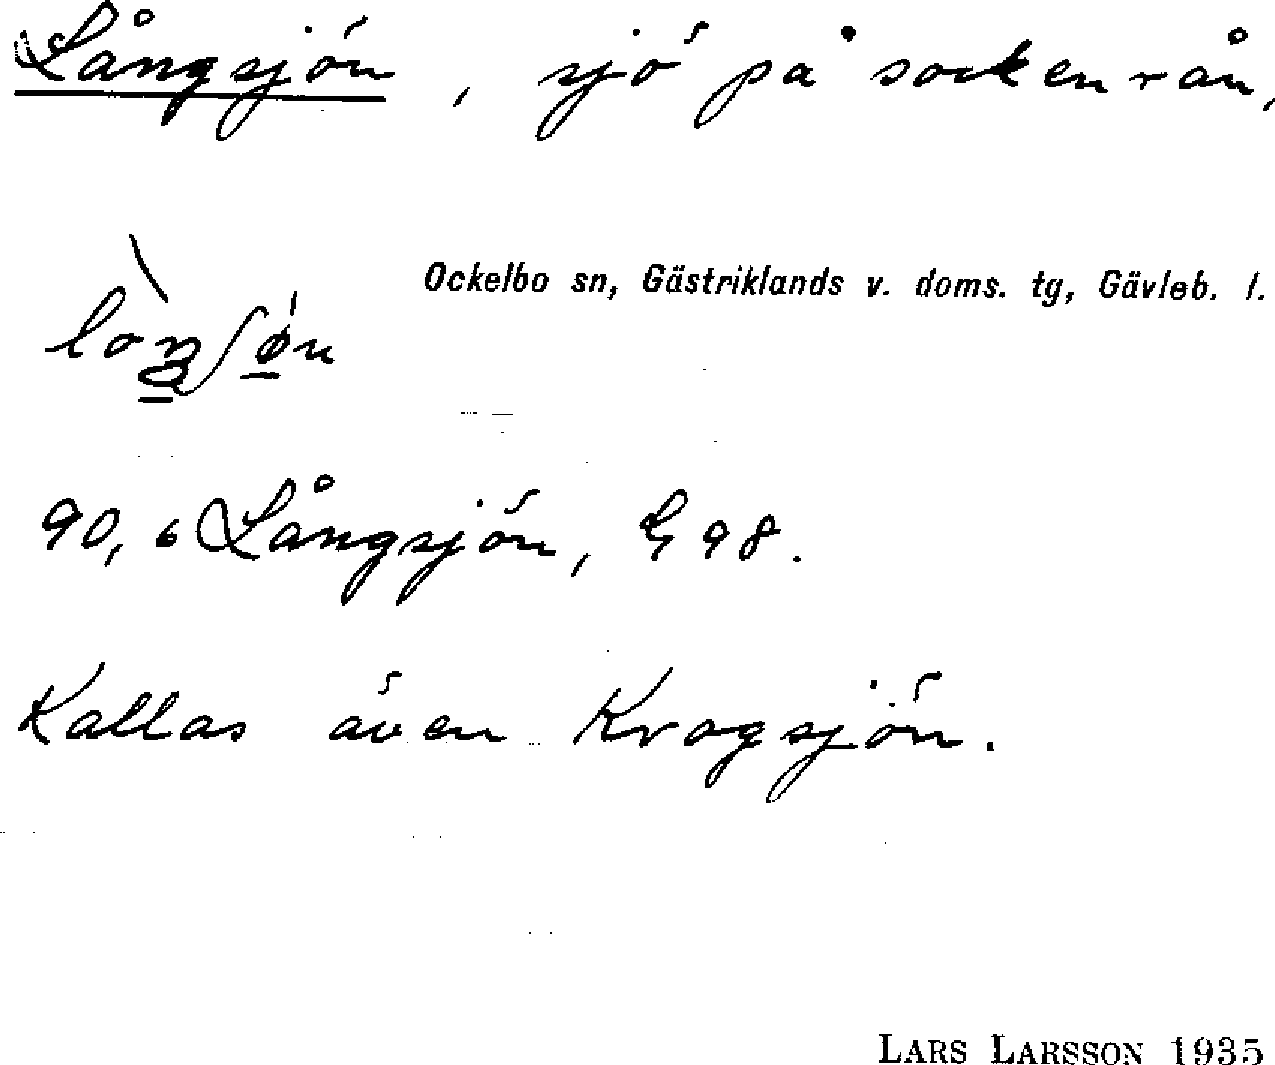 Långsjön, sjö på sockenrån,
Ockelbo sn, Gästriklands v. doms. tg, Gävleb. l.
90,6 Långsjön, G 98.
Kallas även Krogsjön.
LARS LARSSON 1935